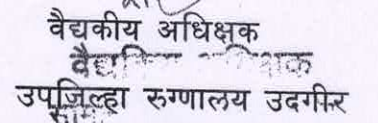 वैद्यकीय अधिक्षक
उपजिल्हा रुग्णालय उदगीर